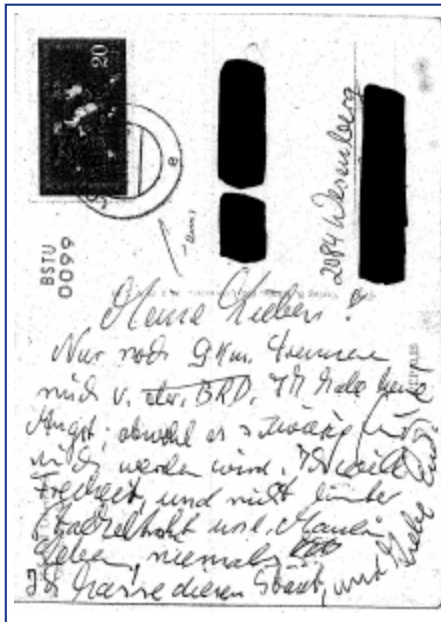 20
BSTU
0099
2084 Wesenberg
Meine Lieben!
Nur noch 9 Km. trennen
mich v. der BRD. Ich habe keine
Angst, obwohl es schwierig für
mich werden wird. Ich will
Freiheit, und nicht hinter
Stacheldraht und Mauern
leben, niemals
Ich hasse diesen Staat, und liebe Euch.